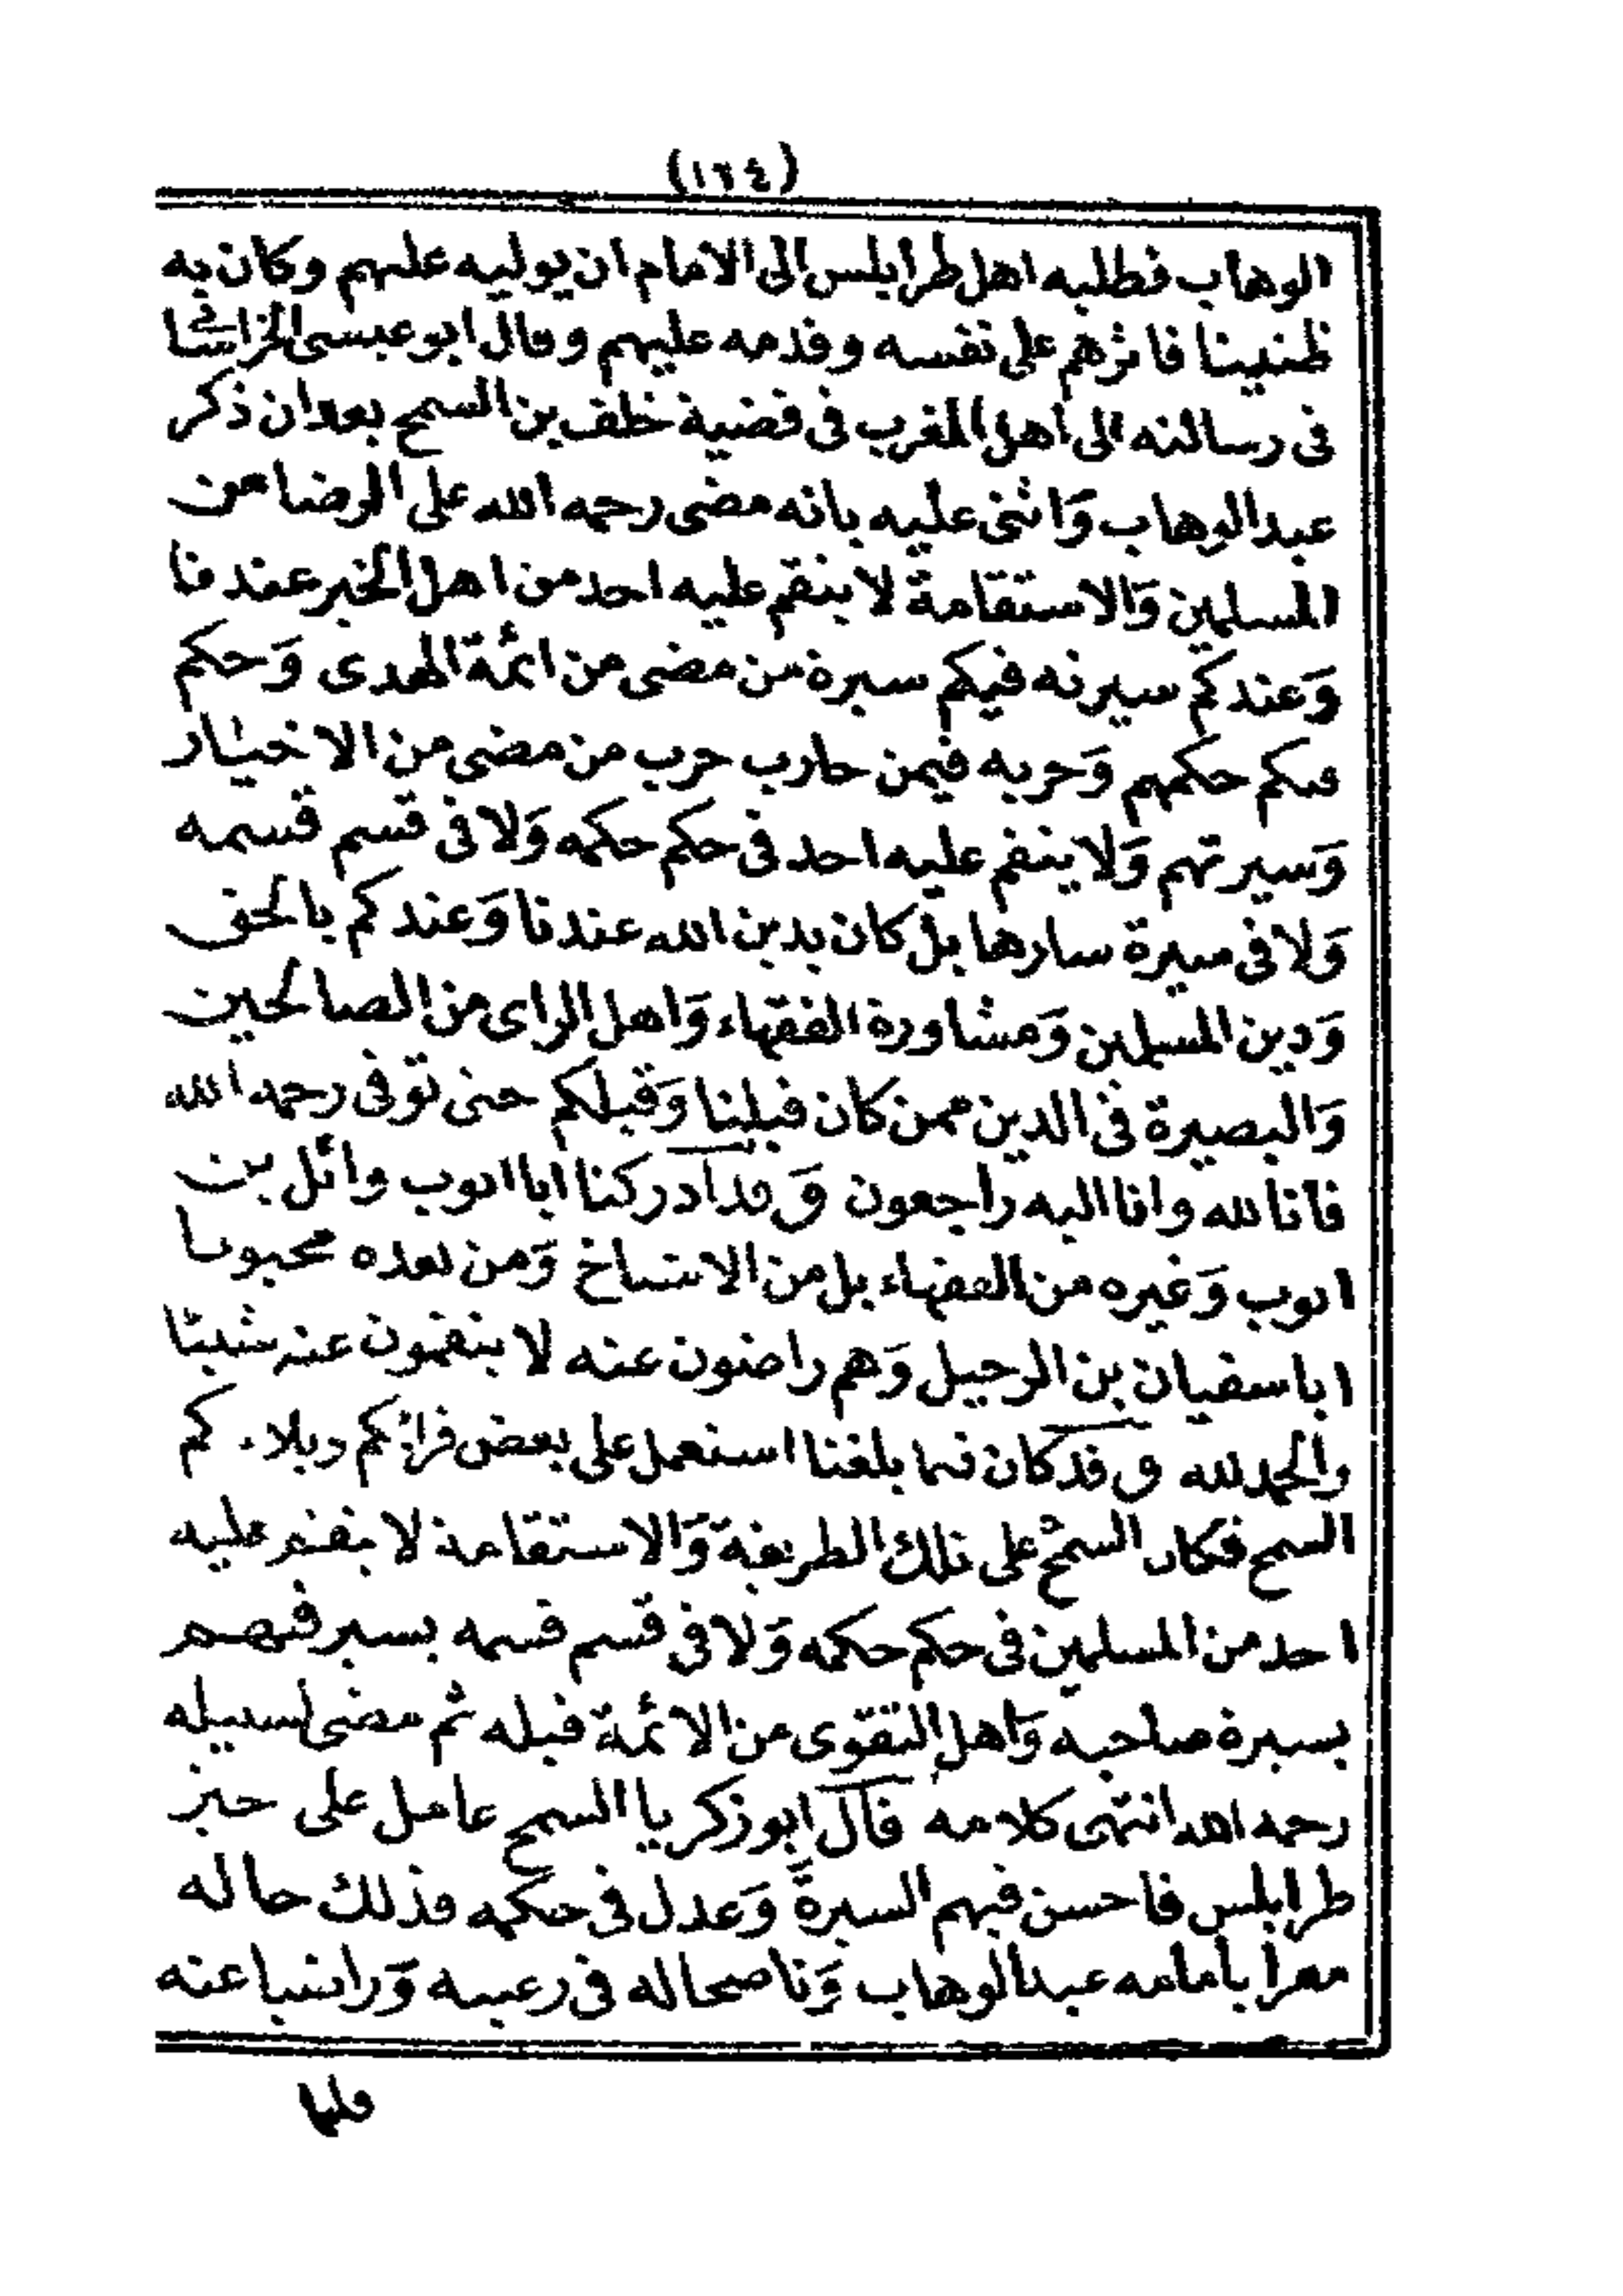 (١٦٤)
الوهاب فطلبه اهل طرابلس الى الامام ان يوليه عليهم وكان به
ظنينا فاثرهم على نفسه وقدمه عليهم وقال ابو عيسى الخراسانى
فى رسالته الى اهل المغرب فى قضية خلف بن السمح بعد ان ذكر
عبد الوهاب وَاثنى عليه بانه مضى رحمه الله على الرضا من
المسلمين وَالاستقامة لا ينقم عليه احد من اهل الخير عندنا
وَعندكم سيرته فيكم سيرة من مضى من ائمة الهدى وَحكم
فيكم حكمهم وَحربه فيمن حارب حرب من مضى من الاخيار
وَسيرتهم وَلا ينقم عليه احد فى حكم حكمه وَلا فى قسم قسمه
وَلا فى سيرة سارها بل كان يدين الله عندنا وَعندكم بالحق
وَدين المسلمين وَمشاورة الفقهاء وَاهل الراى من الصالحين
وَالبصيرة فى الدين ممن كان قبلنا وَقبلكم حتى توفى رحمه الله
فانا لله وانا اليه راجعون وَقد ادركنا ابا ايوب وائل بن
ايوب وَغيره من الفقهاء بل من الاشياخ وَمن بعده محبوبا
ابا سفيان بن الرحيل وَهم راضون عنه لا ينقمون عنه شيئا
والحمد لله وقد كان فيما بلغنا استعمل على بعض قرائكم وبلاءكم
السمح فكان السمح على تلك الطريقة وَالاستقامة لا ينقم عليه
احد من المسلمين فى حكم حكمه وَلا فى قسم قسمه يسير فيهم
بسيرة صاحبه وَاهل التقوى من الائمة قبله ثم مضى لسبيله
رحمه الله انتهى كلامه قال ابو زكريا السمح عامل على حيز
طرابلس فاحسن فيهم السيرةَ وَعدل فى حكمه وذلك حاله
مقرا بامامه عبد الوهاب وَناصحا له فى رعيته وَراضيا عنه
فلما